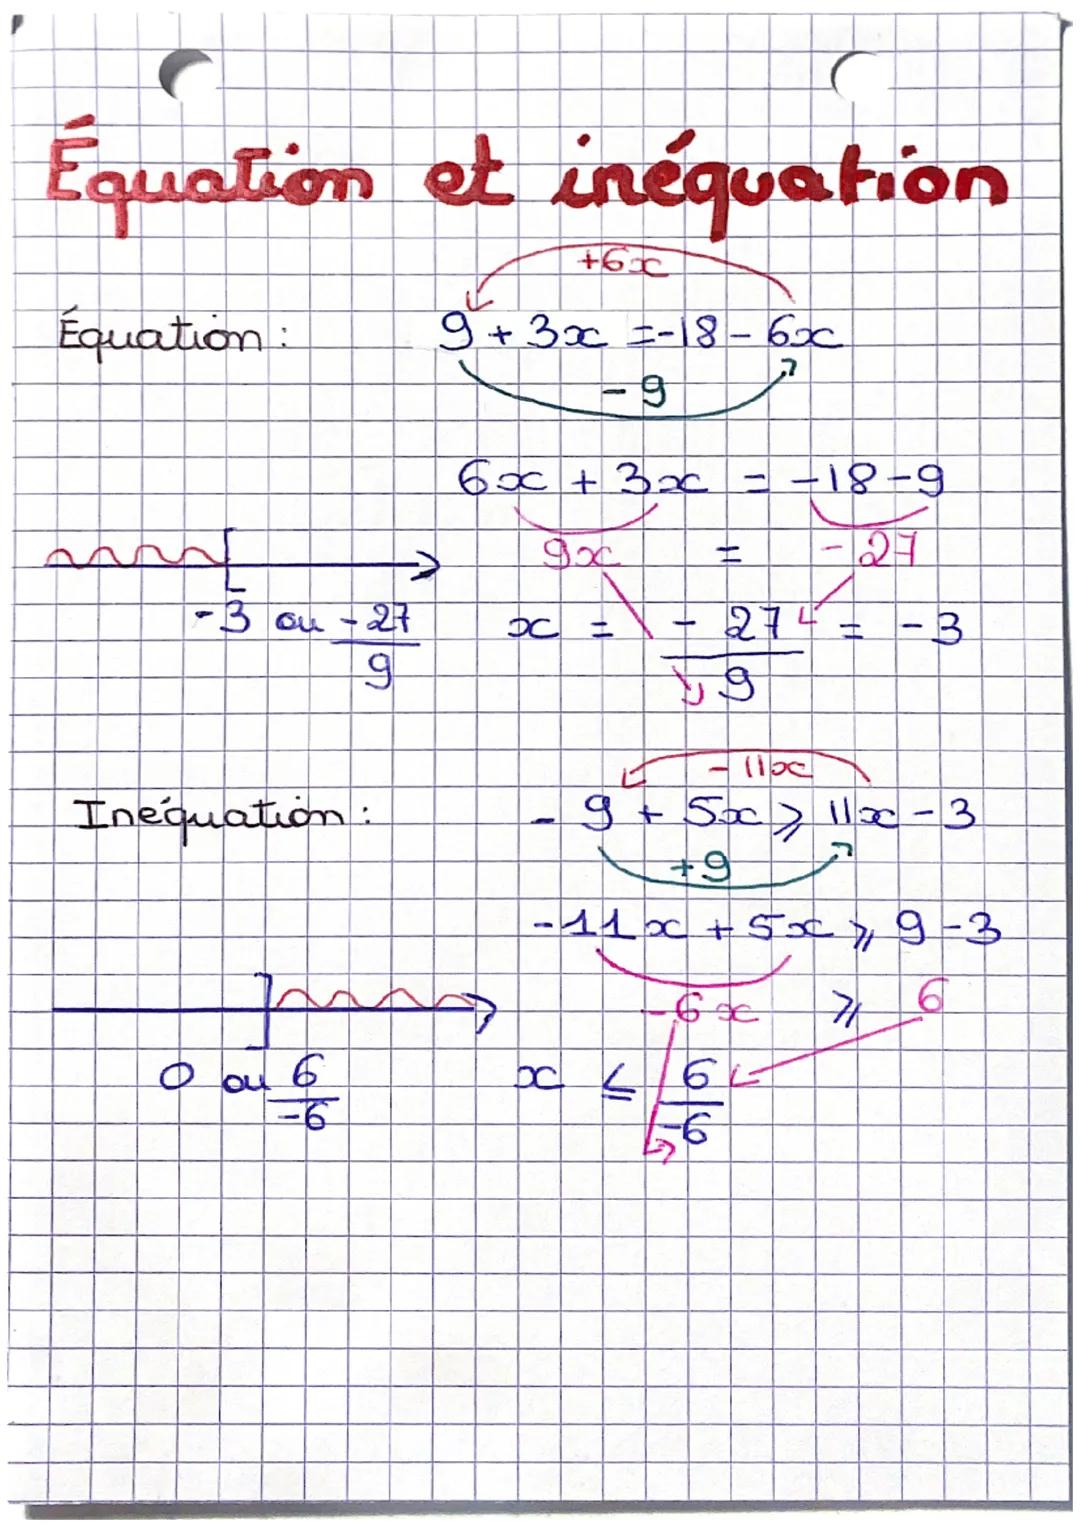 Équation et inéquation
+6x
Équation : 9 + 3x = -18 - 6x
- 9
6x + 3x = -18 - 9
9x = - 27
-3 ou -27/9
x = - 27/9 = -3
- 11x
Inéquation : - 9 + 5x ⩾ 11x - 3
+9
-11x + 5x ⩾ 9 - 3
-6x ⩾ 6
0 ou 6/-6
x ≤ 6/-6